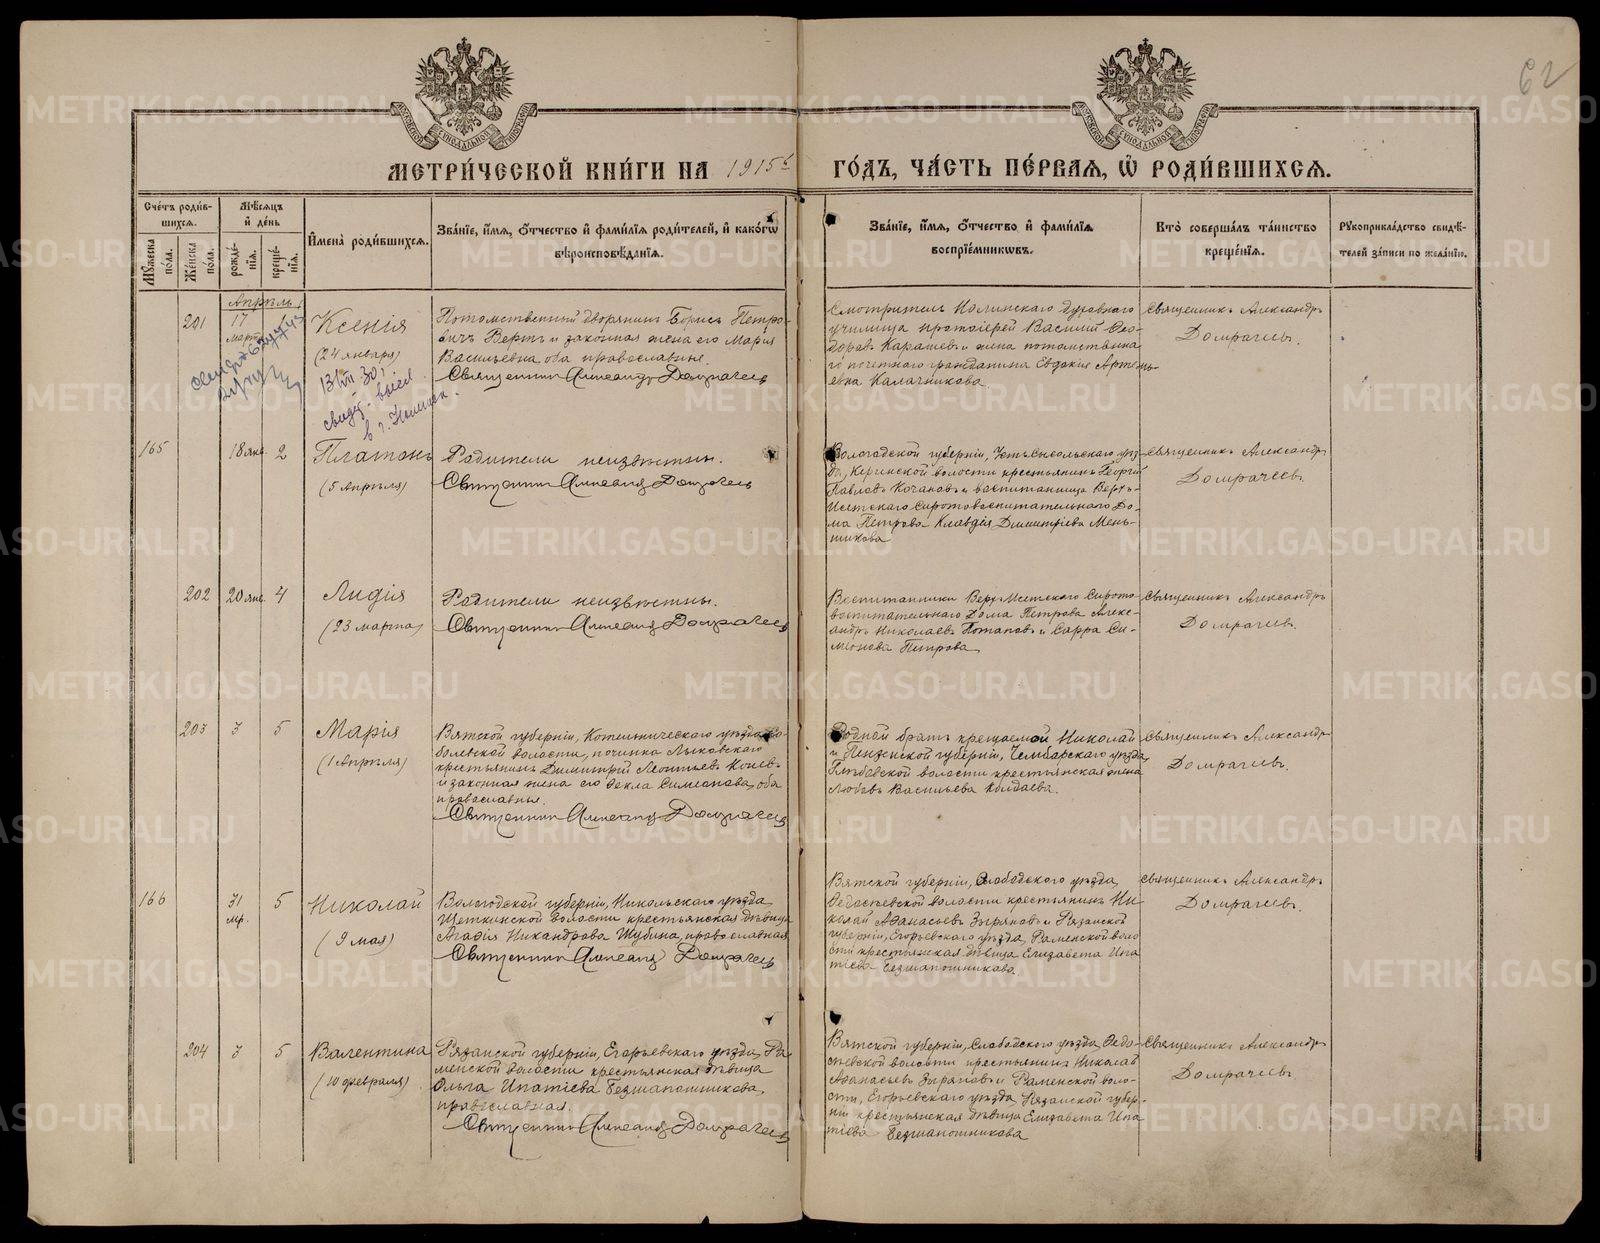 62
МЕТРИЧЕСКОЙ КНИГИ НА 1915й ГОДЪ, ЧАСТЬ ПЕРВАЯ, Ѽ РОДИВШИХСЯ.
Счетъ родившихся.
Мужеска пола.
Женска пола.
Мѣсяцъ и день
рожденія.
крещенія.
Имена родившихся.
Званіе, имя, отчество и фамилія родителей, и какогѡ
вѣроисповѣданія.
Званіе, имя, отчество и фамилія
воспріемниковъ.
Кто совершалъ таинство
крещенія.
Рукоприкладство свидѣ-
телей записи по желанію.
Апрѣль
201
17
март
Ксенія
(24 января)
13/VII 30
Потомственный дворянинъ Борисъ Петро-
вичъ Вертъ и законная жена его Марія
Васильевна оба православные.
Священникъ Александръ Домрачевъ
Смотритель Колинскаго духовнаго
училища протоіерей Василій Ѳео-
доровъ Карашевъ и жена потомственна
го почетнаго гражданина Евдокія Артемь-
евна Калачникова.
Священникъ Александръ
Домрачевъ.
165
18 янв.
2
Платонъ
(5 Апрѣля)
Родители неизвѣстны.
Священникъ Александръ Домрачевъ
Вологодской губерніи, Усть-Сысольскаго уѣз-
да, Керчинской волости крестьянинъ Георгій
Павловъ Качановъ и воспитанница Верхъ-
Исетскаго Сиротовоспитательнаго До-
ма Петрова Клавдія Димитріева Мень-
шикова
Священникъ Александръ
Домрачеевъ.
202
20 янв.
4
Лидія
(23 марта)
Родители неизвѣстны.
Священникъ Александръ Домрачевъ
Воспитанники Верх-Исетскаго Сирото-
воспитательнаго Дома Петрова Алекс-
андръ Николаевъ Потаповъ и Сарра Си-
меонова Петрова
Священникъ Александръ
Домрачевъ.
203
3
5
Марія
(1 Апрѣля)
Вятской губерніи, Котельническаго уѣзда,
волости, починка Лыковскаго
крестьянинъ Димитрій Леонтьевъ Коневъ
и законная жена его Ѳекла Симеонова, оба
православные.
Священникъ Александръ Домрачевъ
Родной братъ крещаемой Николай
и Пензенской губерніи, Чембарскаго уѣзда,
Глѣбовской волости крестьянская жена
Любовь Васильева Колдаева.
Священникъ Александръ
Домрачевъ.
166
31
мр.
5
Николай
(9 мая)
Вологодской губерніи, Никольскаго уѣзда,
Щеткинской волости крестьянская дѣвица
Агаѳія Никандрова Шубина, православная
Священникъ Александръ Домрачевъ
Вятской губерніи, Слободского уѣзда,
волости крестьянинъ Ни-
колай Аѳанасьевъ Зыряновъ и Рязанской
губерніи, Егорьевскаго уѣзда, Раменской воло
сти крестьянская дѣвица Елизавета Ипа
тіева Безшапошникова
Священникъ Александръ
Домрачевъ.
204
3
5
Валентина
(10 февраля)
Рязанской губерніи, Егорьевскаго уѣзда, Ра-
менской волости крестьянская дѣвица
Ольга Ипатіева Безшапошникова,
православная.
Священникъ Александръ Домрачевъ
Вятской губерніи, Слободского уѣзда,
волости крестьянинъ Николай
Аѳанасьевъ Зыряновъ и Раменской воло-
сти, Егорьевскаго уѣзда, Рязанской губер-
ніи крестьянская дѣвица Елизавета Ипа
тіева Безшапошникова
Священникъ Александръ
Домрачеевъ.
METRIKI.GASO-URAL.RU